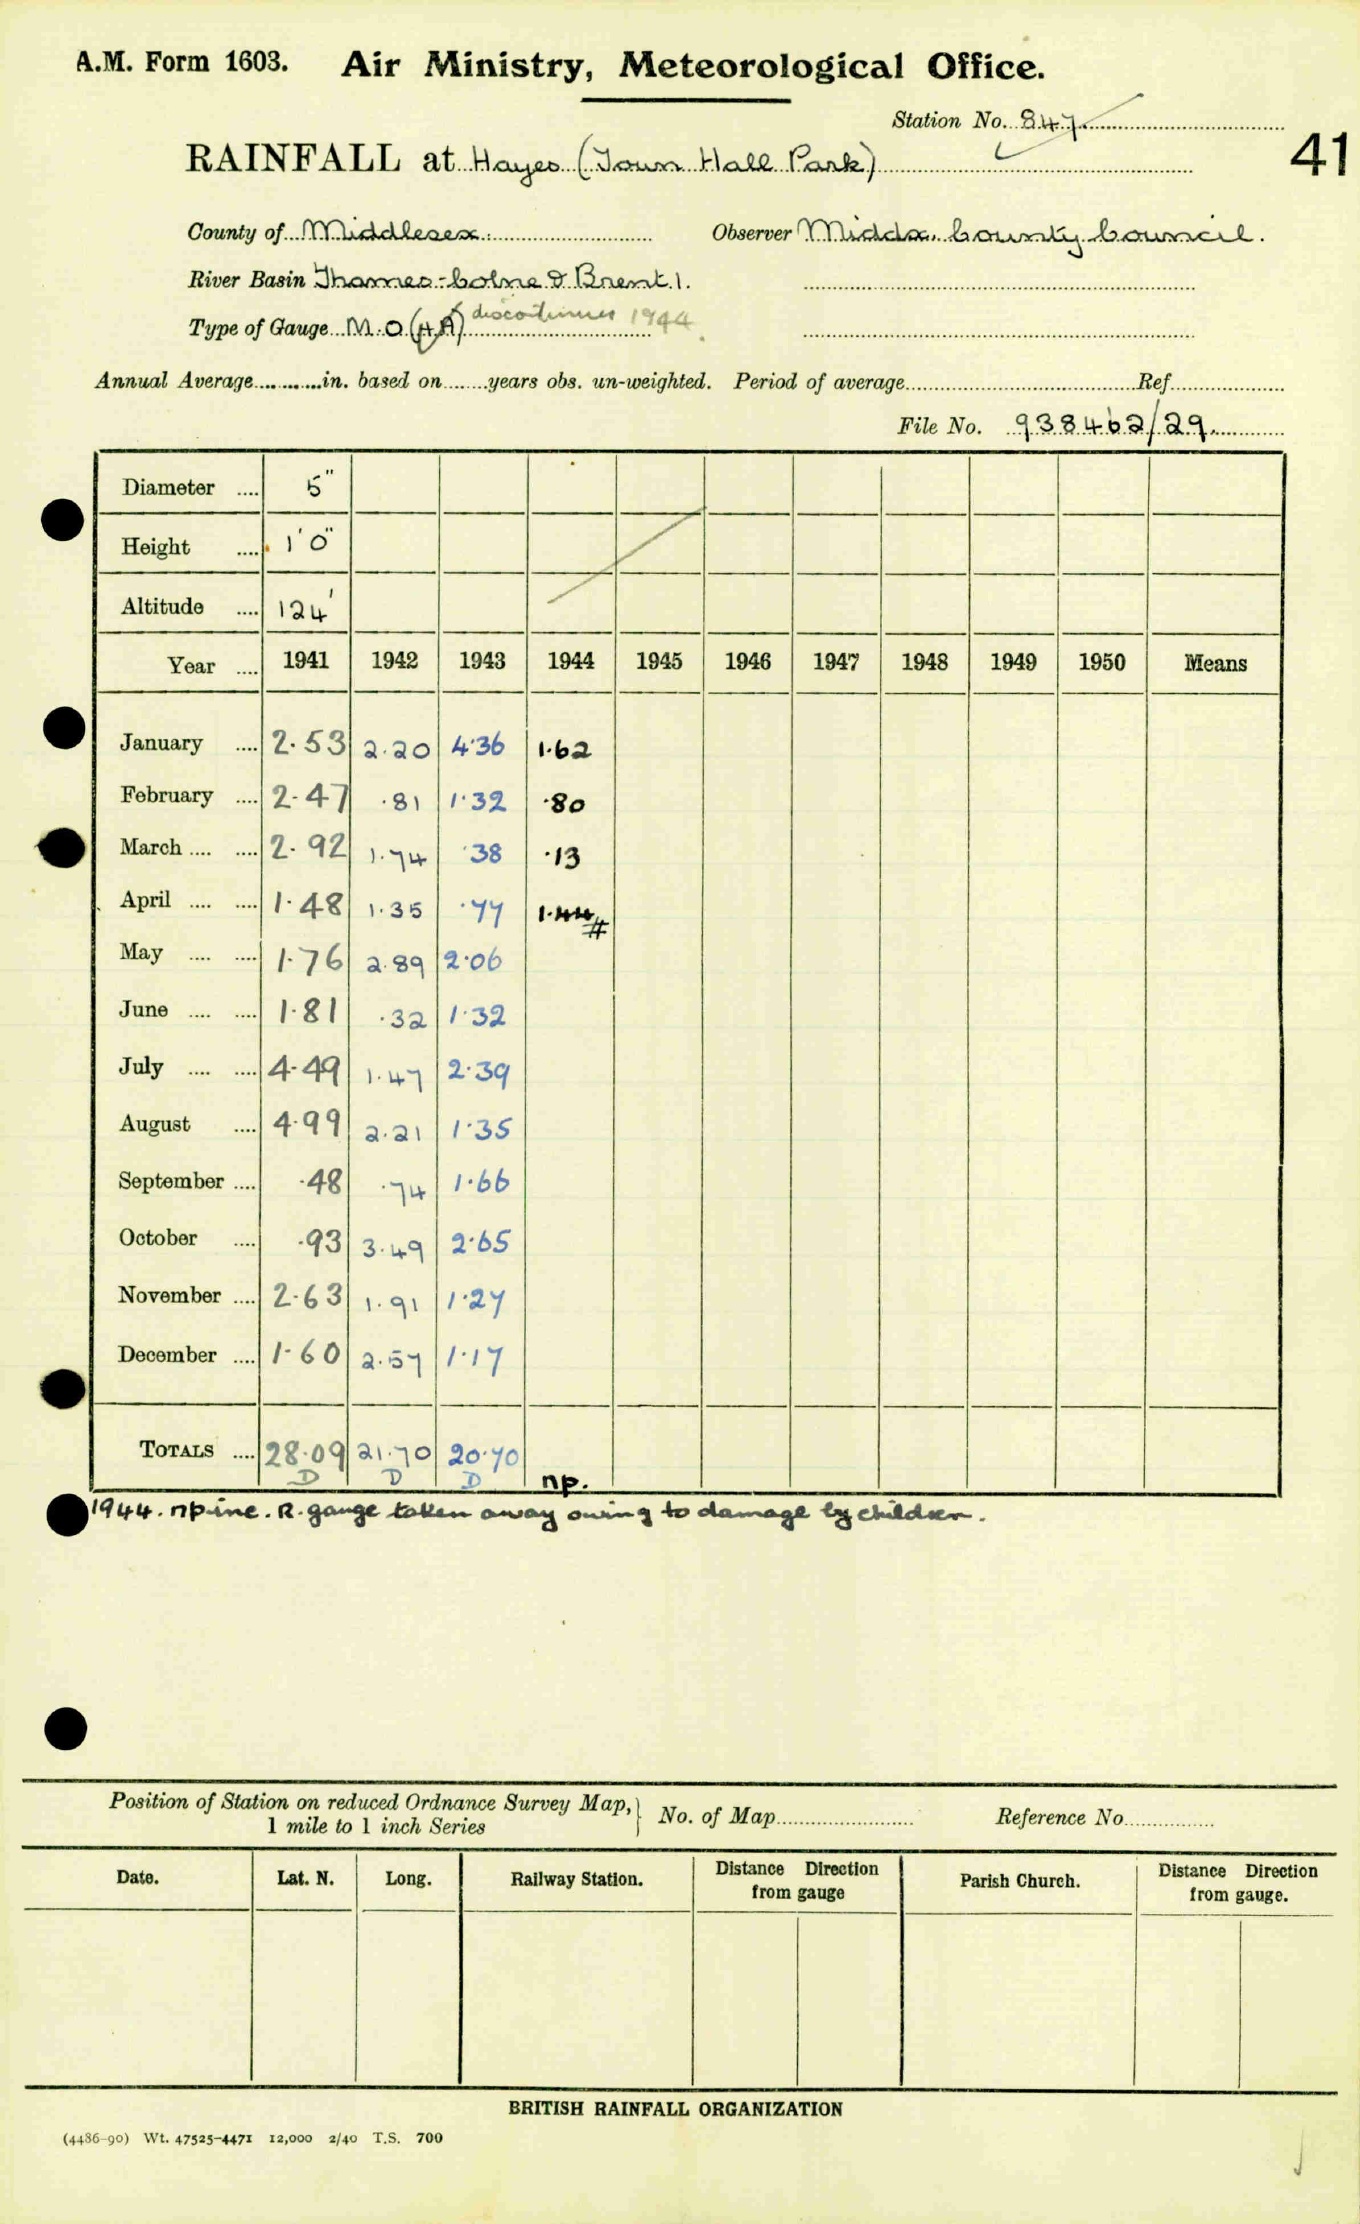 A.M. Form 1603. Air Ministry, Meteorological Office.
Station No. 847.
41
RAINFALL at Hayes (Town Hall Park)
County of Middlesex. Observer Middx. County Council.
River Basin Thames-Colne & Brent 1.
Type of Gauge M.O (HA) discontinued 1944
Annual Average in. based on years obs. un-weighted. Period of average Ref
File No. 938462/29.
Diameter .... 5"
Height .... 1'0"
Altitude .... 124'
Year .... 1941 1942 1943 1944 1945 1946 1947 1948 1949 1950 Means
January .... 2.53 2.20 4.36 1.62
February .... 2.47 .81 1.32 .80
March .... .... 2.92 1.74 .38 .13
April .... .... 1.48 1.35 .77 1.44#
May .... .... 1.76 2.89 2.06
June .... .... 1.81 .32 1.32
July .... .... 4.49 1.47 2.39
August .... 4.99 2.21 1.35
September .... .48 .74 1.66
October .... .93 3.49 2.65
November .... 2.63 1.91 1.27
December .... 1.60 2.57 1.17
TOTALS .... 28.09 21.70 20.70
D D D np.
1944. np inc. R. gauge taken away owing to damage by children.
Position of Station on reduced Ordnance Survey Map, } No. of Map Reference No.
1 mile to 1 inch Series
Date. Lat. N. Long. Railway Station. Distance Direction from gauge Parish Church. Distance Direction from gauge.
BRITISH RAINFALL ORGANIZATION
(4486-90) Wt. 47525-4471 12,000 2/40 T.S. 700